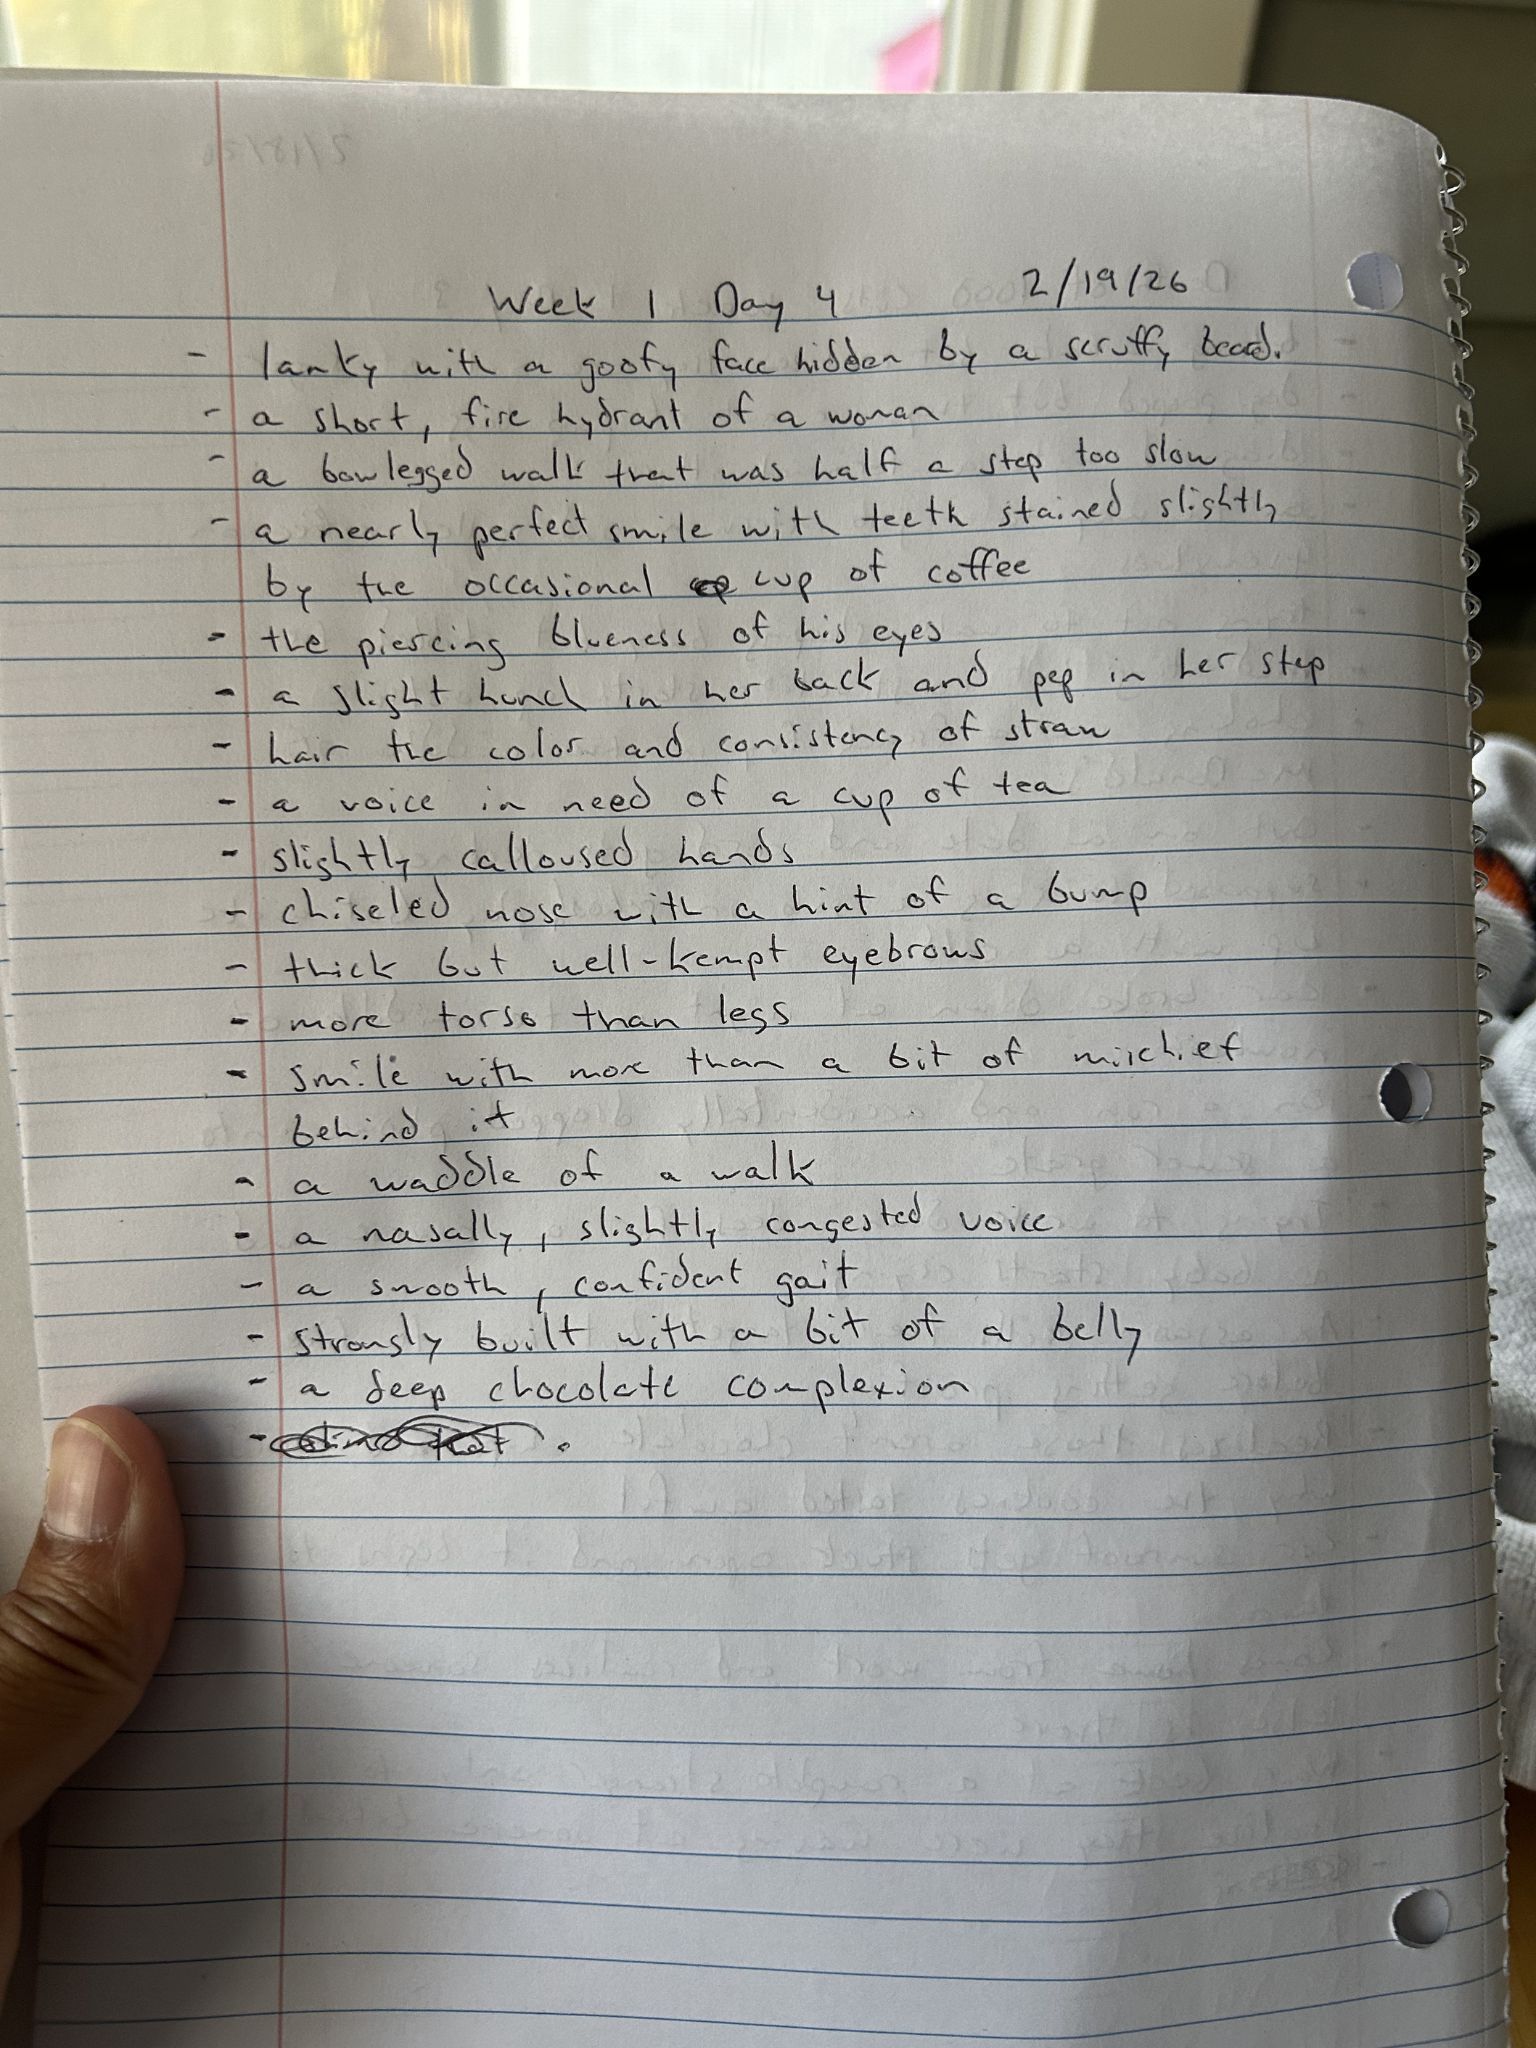 Week 1 Day 4 2/19/26
- lanky with a goofy face hidden by a scruffy beard.
- a short, fire hydrant of a woman
- a bowlegged walk that was half a step too slow
- a nearly perfect smile with teeth stained slightly
by the occasional cup of coffee
- the piercing blueness of his eyes
- a slight hunch in her back and pep in her step
- hair the color and consistency of straw
- a voice in need of a cup of tea
- slightly calloused hands
- chiseled nose with a hint of a bump
- thick but well-kempt eyebrows
- more torso than legs
- smile with more than a bit of mischief
behind it
- a waddle of a walk
- a nasally, slightly congested voice
- a smooth, confident gait
- strongly built with a bit of a belly
- a deep chocolate complexion